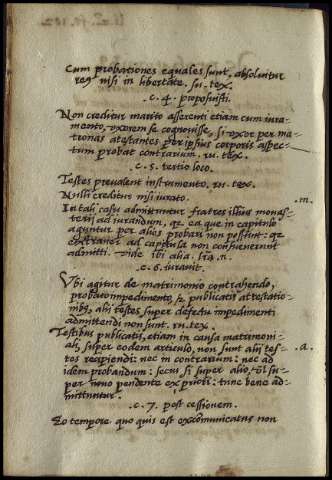 Cum probationes equales sunt, absolvitur
reus nisi in libertate. su. tex.
.c. 4. proposuisti.
Non creditur marito asserenti etiam cum iura-
mento, uxorem se cognouisse, si uxor per ma-
tronas atestantes per ipsius corporis aspec-
tum probat contrarium. ru. tex.
.c. 5. tertio loco.
Testes prevalent instrumento. ru. tex.
Nulli creditur nisi iurato.
.m.
In tali casu admittuntur fratres illius monas-
terij ad iurandum, qr. ea que in capitulo
aguntur per alios probari non possunt: qr
extranei ad capitula non consueuerunt
admitti. vide ibi alia.
.c. 6. iuravit.
Ubi agitur de matrimonio contrahendo,
probato impedimento, & publicatis attestatio-
nibus, alij testes super defectu impedimenti
admittendi non sunt. ru. tex.
Testibus publicatis, etiam in causa matrimoni-
ali, super eodem articulo, non sunt alij tes-
.a.
tes recipiendi: nec in contrarium: nec ad
idem probandum: secus si super alio, vel su-
per nouo pendente ex priori: tunc bene ad-
mittuntur.
.c. 7. post cessionem.
Eo tempore quo quis est excommunicatus non